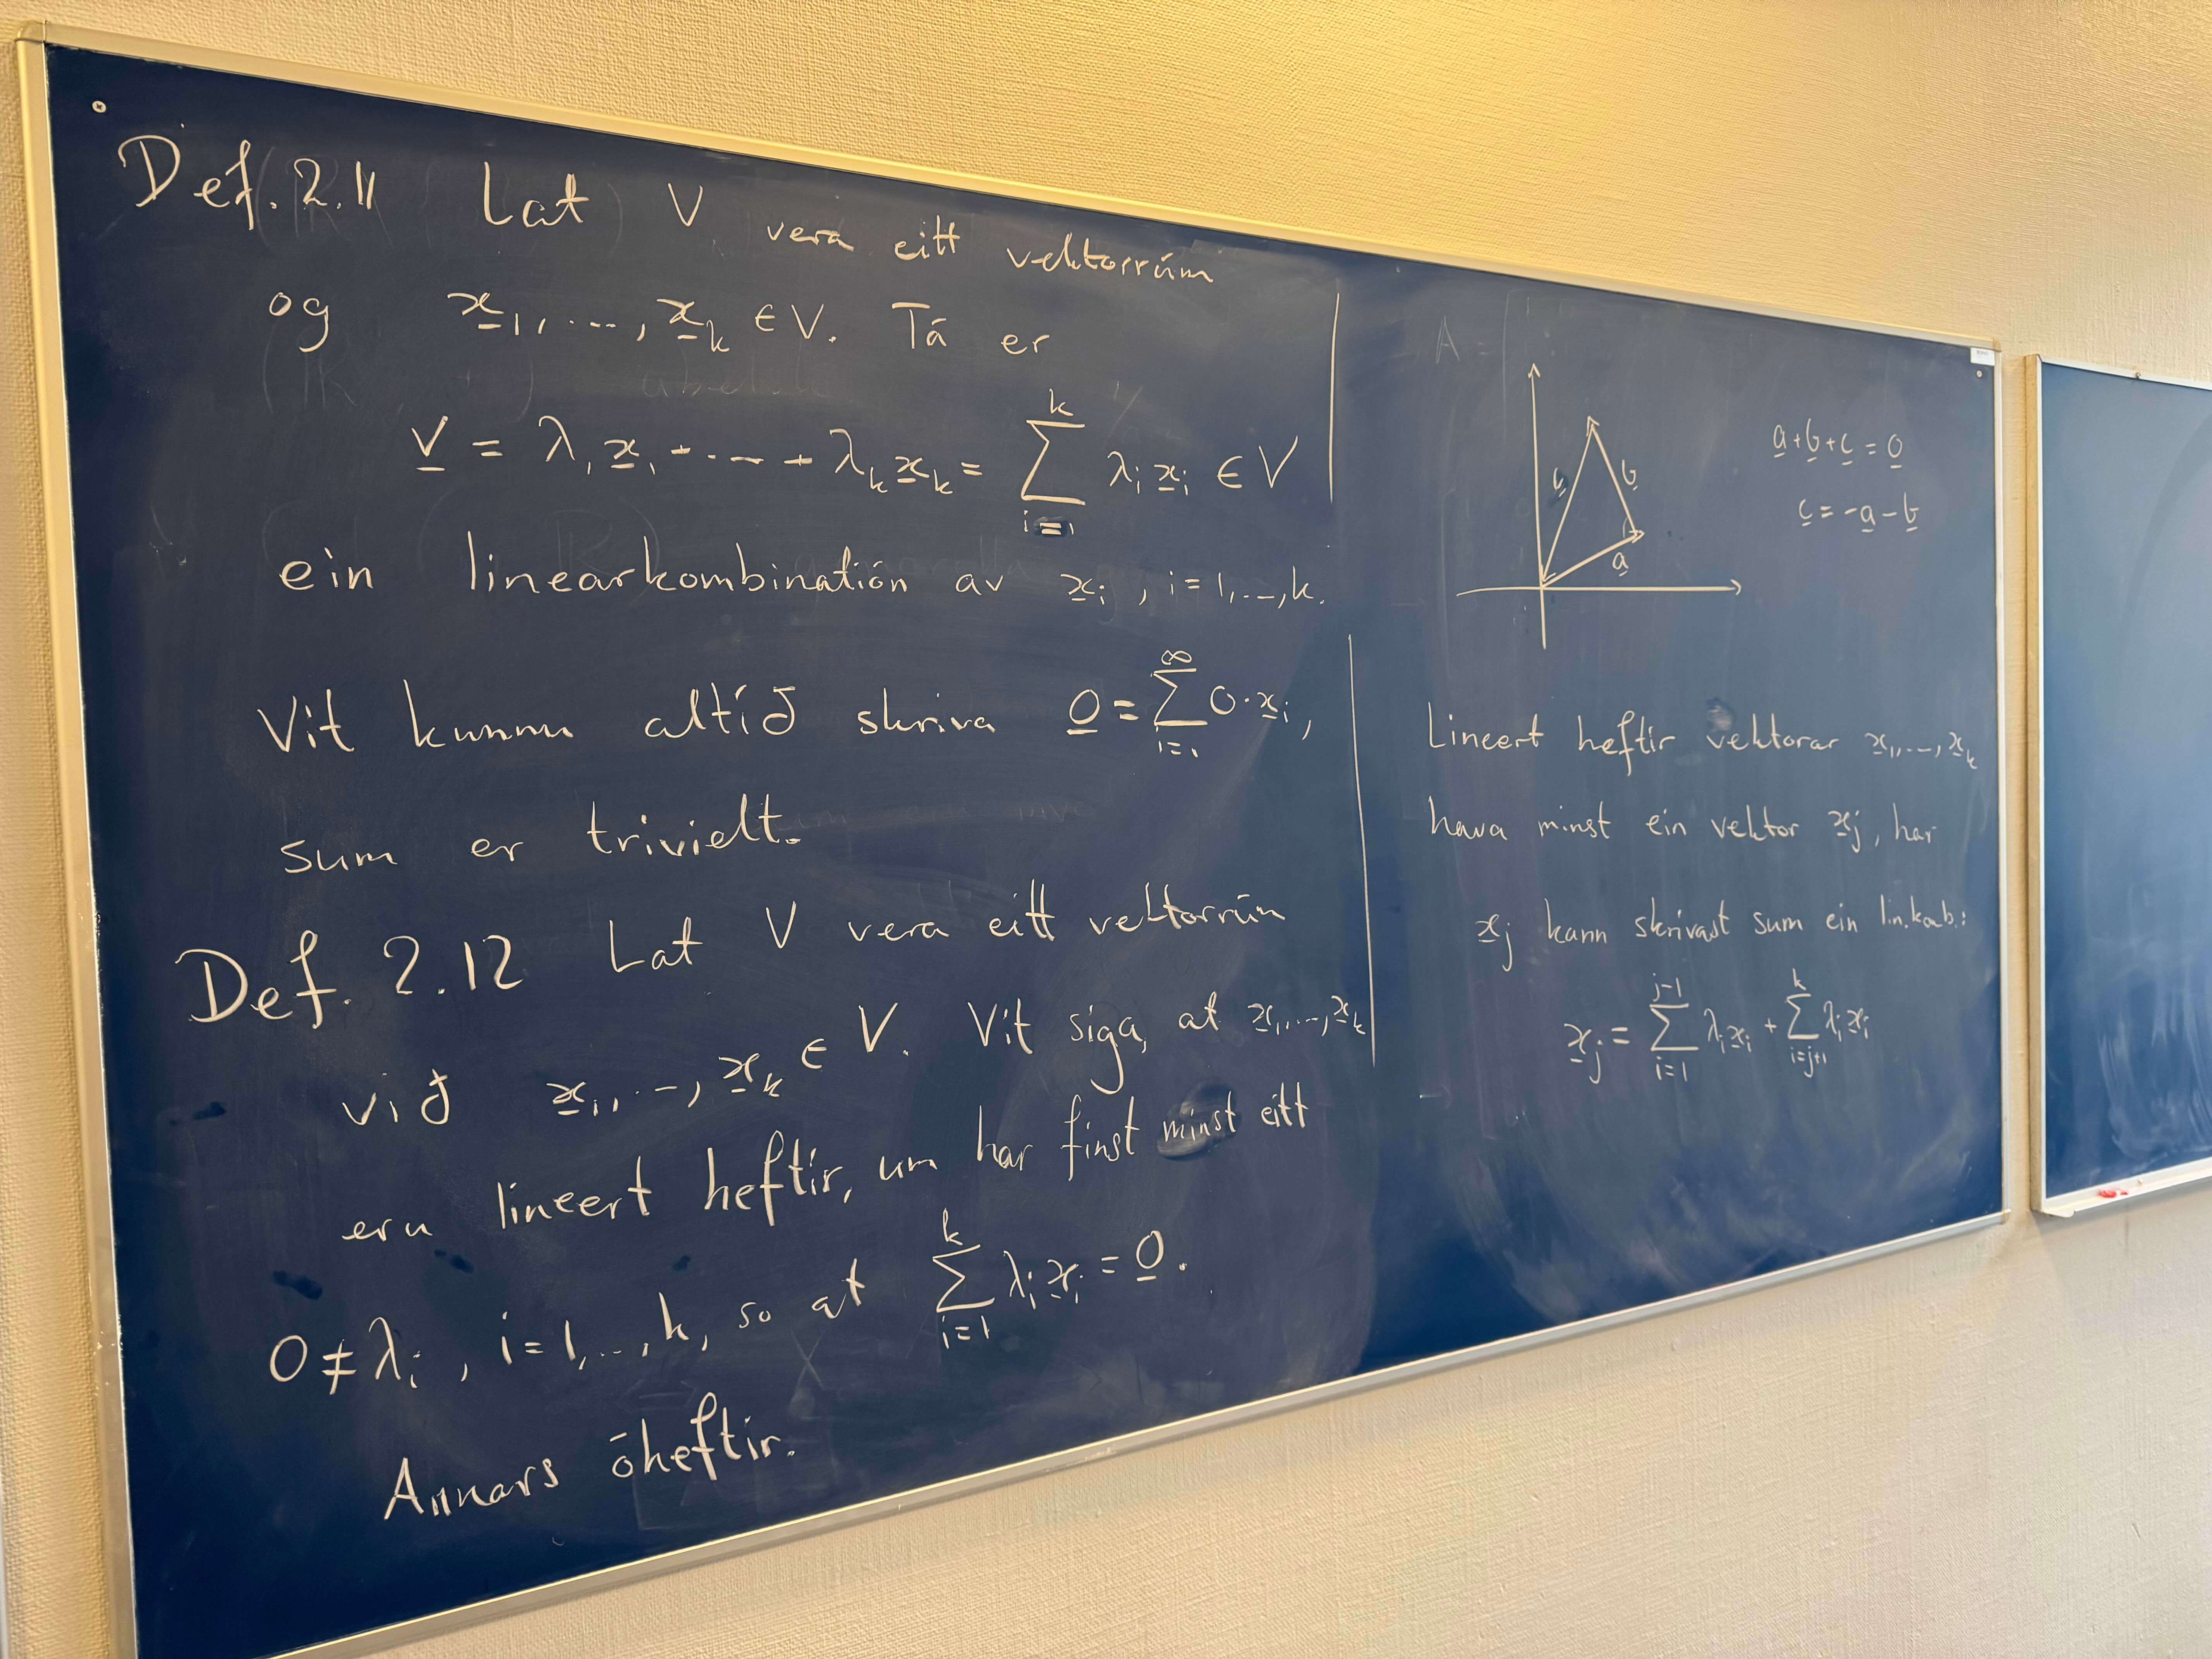 Def. 2.11 Lat V vera eitt vektorrúm
og x̲₁, ..., x̲ₖ ∈ V. Tá er
v̲ = λ₁x̲₁ + ... + λₖx̲ₖ = ∑ᵢ₌₁ᵏ λᵢx̲ᵢ ∈ V
ein linearkombinatión av x̲ᵢ, i = 1, ..., k.
Vit kunnu altíð skriva 0̲ = ∑ᵢ₌₁^∞ 0·x̲ᵢ,
sum er trivielt.
Def. 2.12 Lat V vera eitt vektorrúm
við x̲₁, ..., x̲ₖ ∈ V. Vit siga, at x̲₁, ..., x̲ₖ
eru lineert heftir, um har finst minst eitt
0 ≠ λᵢ, i = 1, ..., k, so at ∑ᵢ₌₁ᵏ λᵢx̲ᵢ = 0̲.
Annars óheftir.
a̲ + b̲ + c̲ = 0̲
c̲ = -a̲ - b̲
c̲
b̲
a̲
Lineert heftir vektorar x̲₁, ..., x̲ₖ
hava minst ein vektor x̲ⱼ, har
x̲ⱼ kann skrivast sum ein lin.kob.:
x̲ⱼ = ∑ᵢ₌₁ʲ⁻¹ λᵢx̲ᵢ + ∑ᵢ₌ⱼ₊₁ᵏ λᵢx̲ᵢ